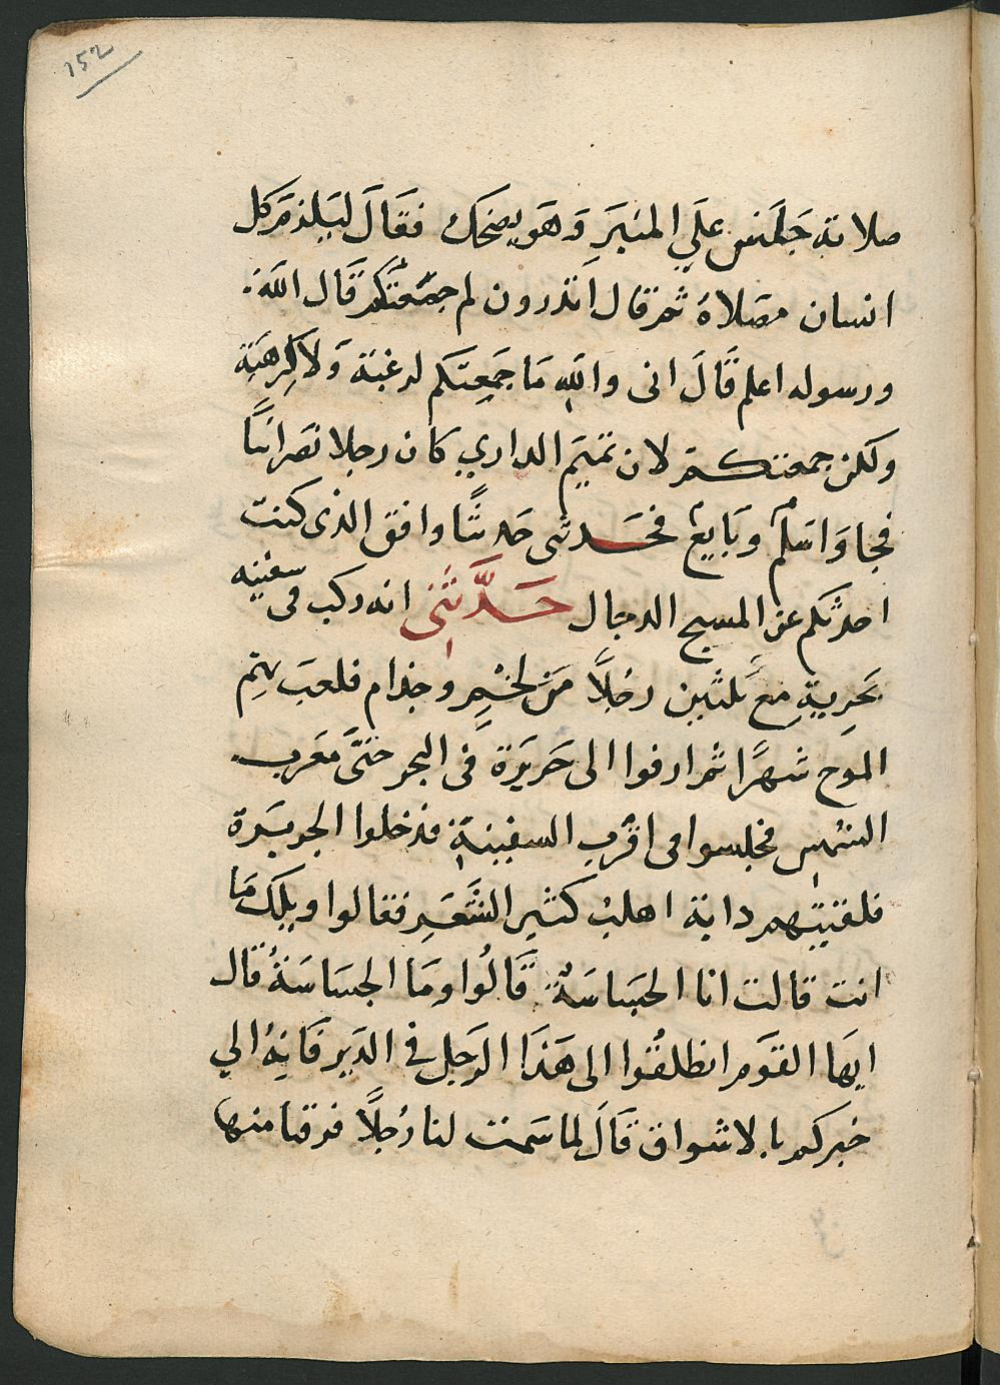 152
صلاته جلس علي المنبر وهو يضحك فقال ليلزم كل
انسان مصلاه ثم قال اتدرون لم جمعتكم قال الله
ورسوله اعلم قال انى والله ما جمعتكم لرغبة ولا لرهبة
ولكن جمعتكم لان تميم الداري كان رجلا نصرانيا
فجا واسلم وبايع فحدثنى حديثا وافق الذى كنت
احدثكم عن المسيح الدجال حدثنى انه ركب فى سفينه
بحرية مع ثلثين رجلا من لخم وجذام فلعب بهم
الموج شهرا ثم ارفوا الى جزيرة فى البحر حتى مغرب
الشمس فجلسوا فى اقرب السفينة فدخلوا الجزيرة
فلقيتهم دابة اهلب كثير الشعر فقالوا ويلك ما
انت قالت انا الجساسة قالوا وما الجساسة قال
ايها القوم انطلقوا الى هذا الرجل في الدير فانه الي
خبركم بالاشواق قال لما سمت لنا رجلا فرقنا منها